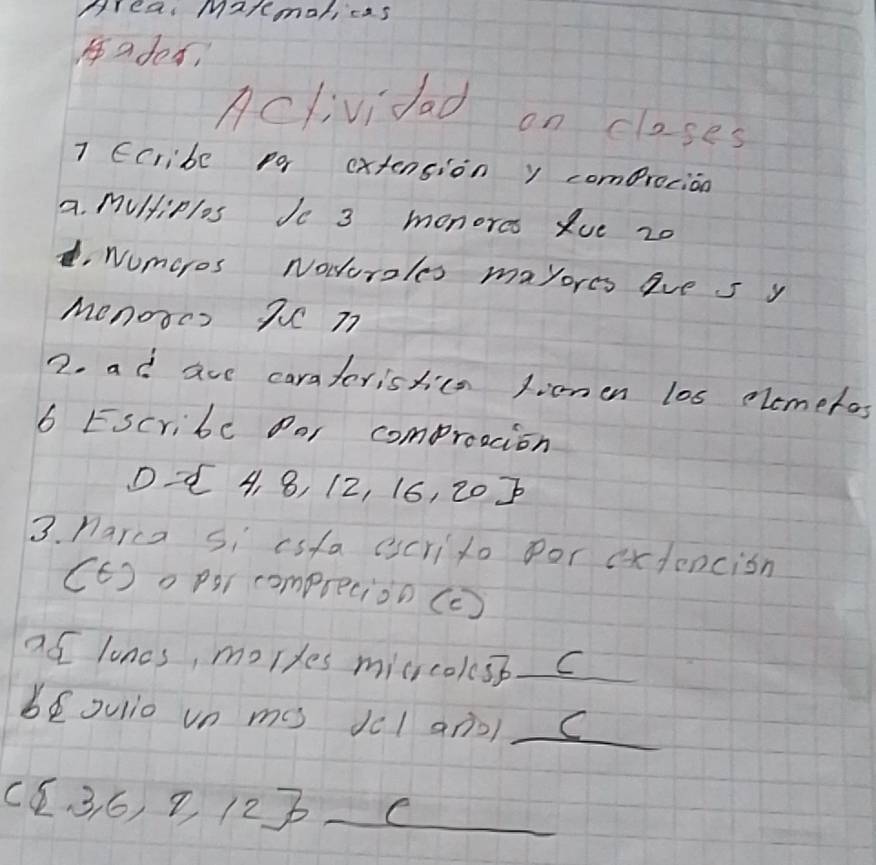 Area. Matematicas
Actividad en clases
1 Ecribe por extensión y comprecion
a. Multiplos de 3 menores que 20
d. Numeros Naturales mayores que 5 y
Menores que 11
2. a d que carateristica tienen los elemetos
b Escribe por comprención
D={ 4, 8, 12, 16, 20 }
3. Marca si esta escrito por extención
(E) o por comprecion (c)
a{ lunes, martes miercoles} C
b{ Julio un mes del año} C
c{ 3, 6, 9, 12 } C